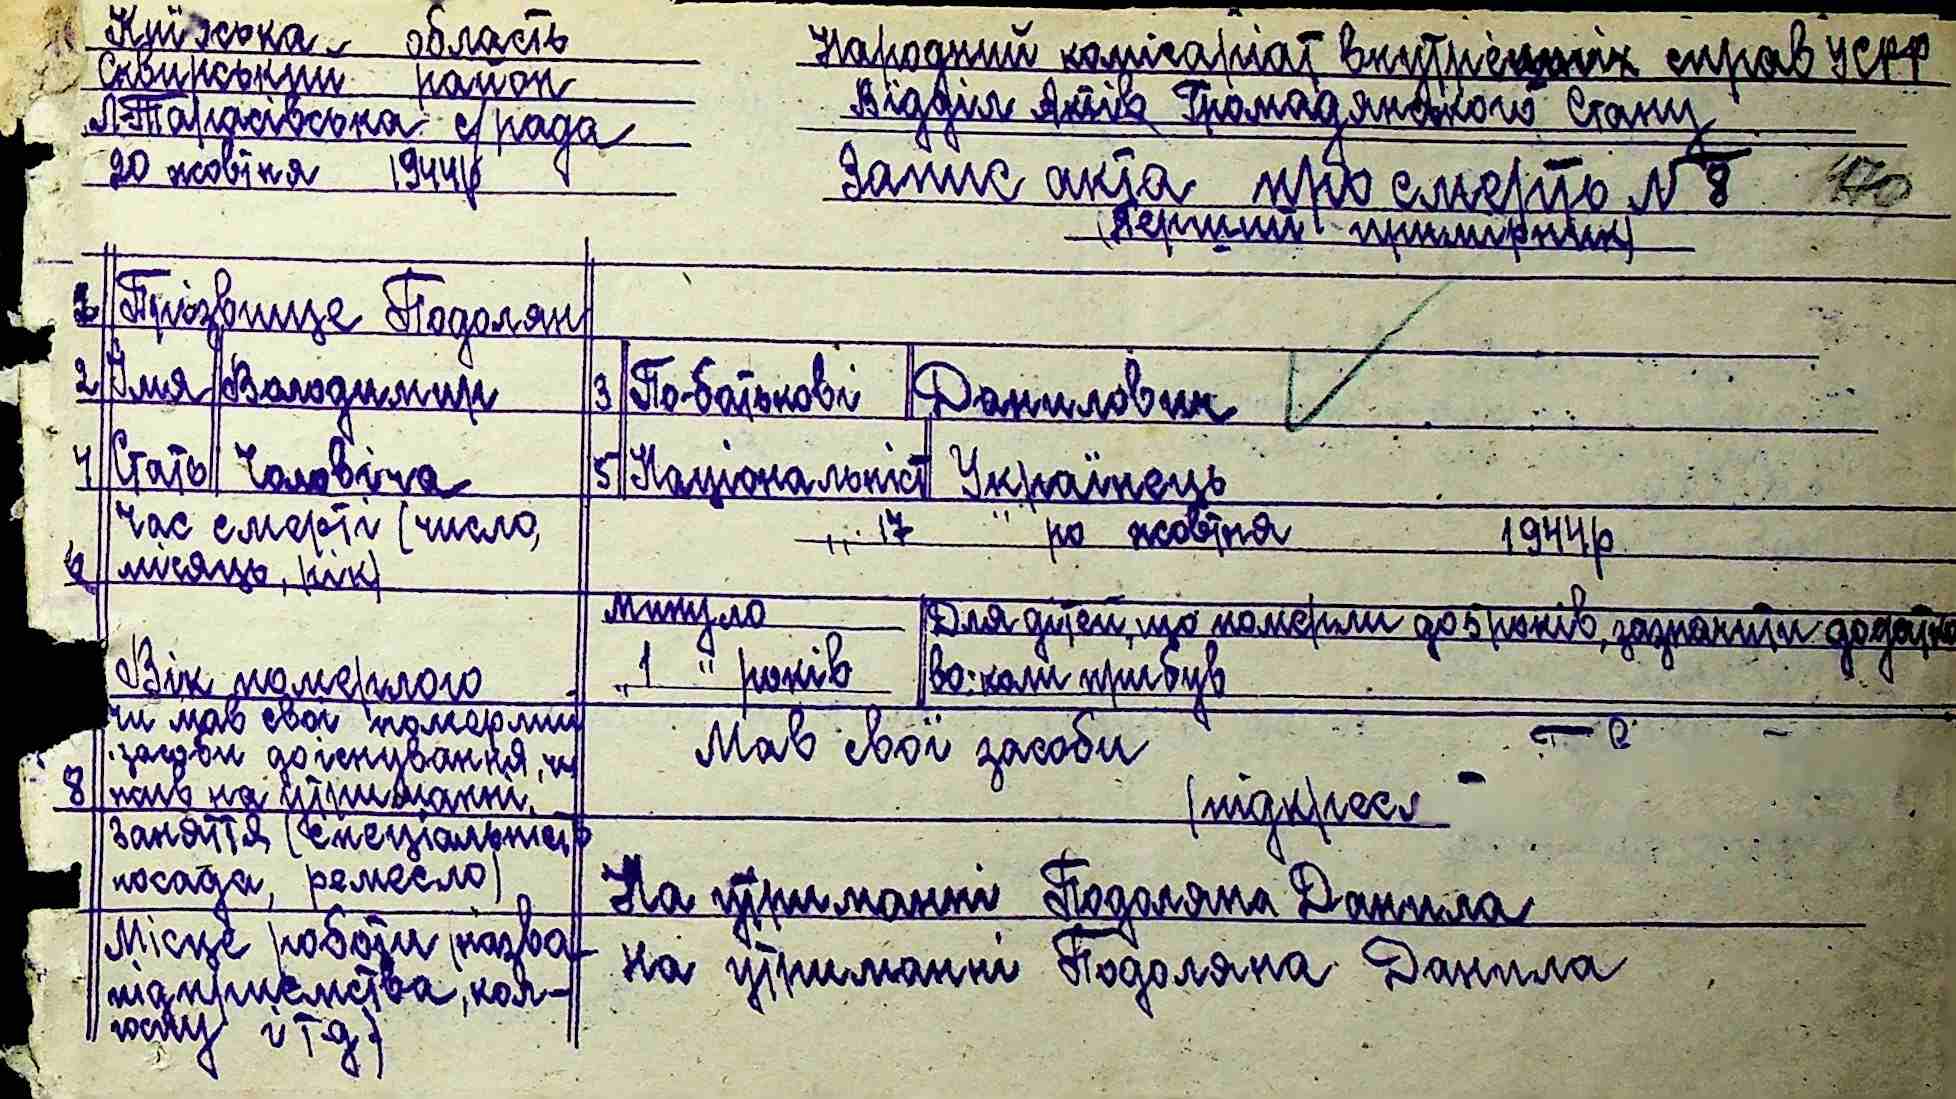 Київська область
Сквирський район
Л-Тарасівська с/рада
20 жовтня 1944р
Народний комісаріат внутрешніх справ УСРР
Відділ Актів Громадянського Стану
Запис акта про смерть № 8
470
(Перший примірник)
1 Прізвище Подолян
2 Імя Володимир 3 По-батькові Данилович
4 Стать Чоловіча 5 Національніст Українець
Час смерті (число,
6 місяць, рік)
„ 17 " го жовтня 1944р
Вік померлого
минуло
„ 1 " років
Для дітей, що померли до 5 років, зазначити додатко
во: коли прибув
чи мав свої померлий
засоби до існування, чи
8 жив на утриманні,
Мав свої засоби
(підкресл
Заняття (спеціальність
посада, ремесло)
На утриманні Подоляна Данила
Місце роботи (назва
підприємства, кол-
госпу і т д)
на утриманні Подоляна Данила